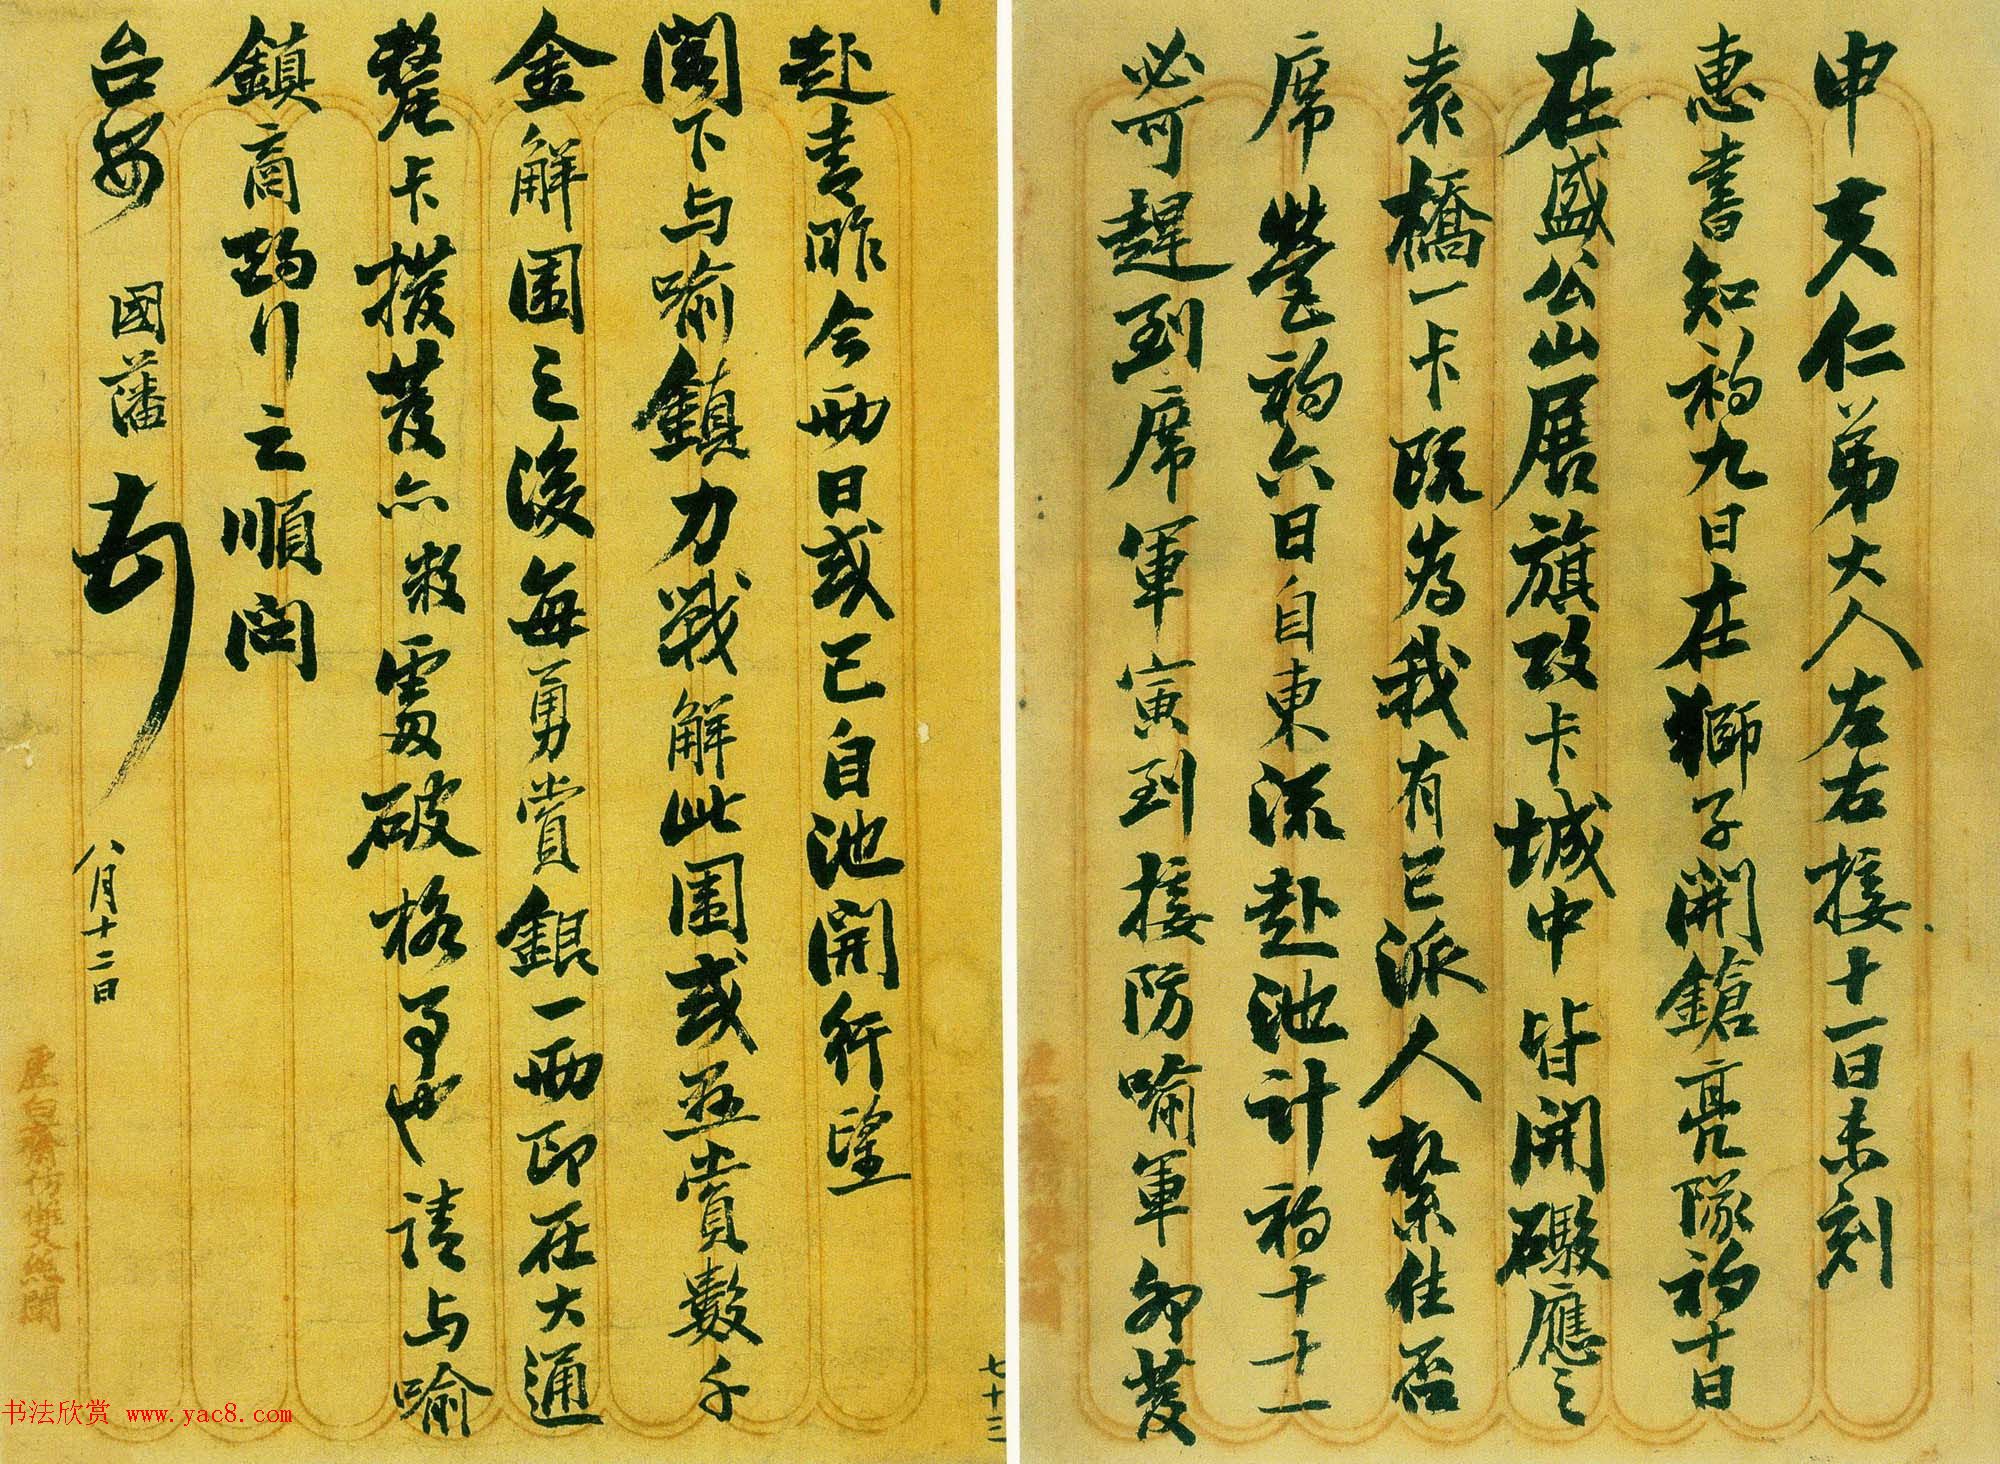 申夫仁弟大人左右接十一日未刻
惠書知初九日在獅子開鎗亮隊初十日
在盛公山展旗改卡城中皆開礮應之
袁橋一卡既為我有已派人紮住否
席營初六日自東流赴池計初十十一
必可趕到席軍寅到接防喻軍卯發
赴青昨今兩日或已自池開行望
閣下与喻鎮力戰解此圍或並賞數千
金解圍之後每勇賞銀一兩即在大通
釐卡撥發亦救急破格事也請与喻
鎮商酌行之順問
台安 國藩 頓首 八月十二日
七十三
虛白齋仿
书法欣赏 www.yac8.com